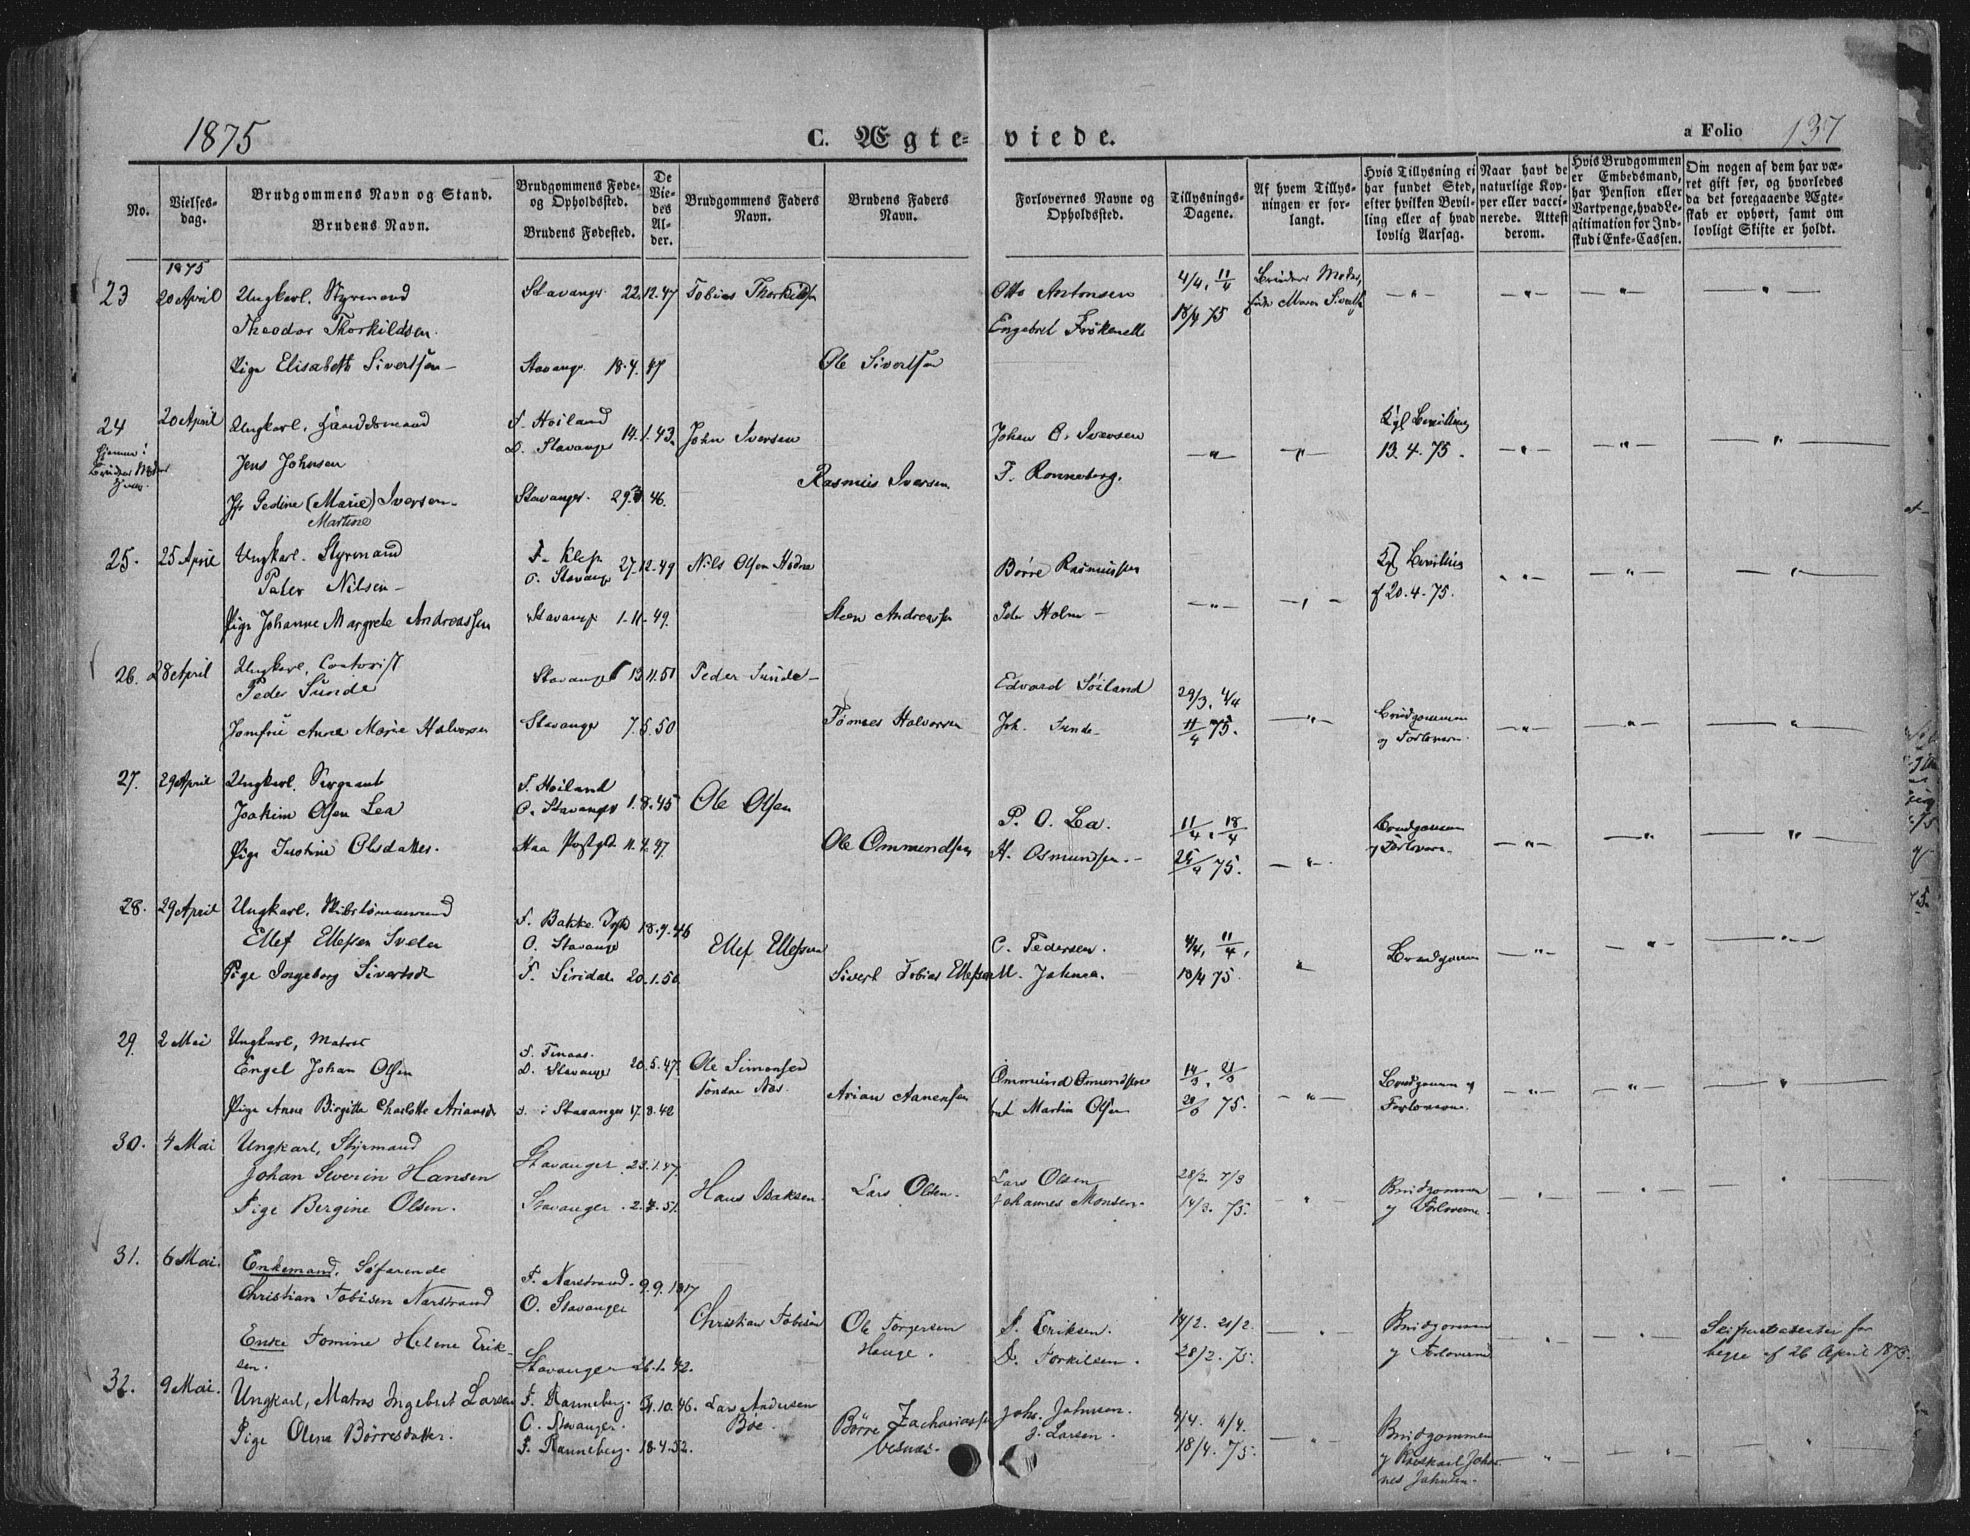 1875
C. Ægte-
viede.
a Folio 137
No.
Vielses-
dag.
Brudgommens Navn og Stand.
Brudens Navn.
Brudgommens Føde-
og Opholdssted.
Brudens Fødested.
De
Vie-
des
Al-
der.
Brudgommens Faders
Navn.
Brudens Faders
Navn.
Forlovernes Navne og
Opholdssted.
Tillysnings-
Dagene.
Af hvem Tillys-
ningen er for-
langt.
Hvis Tillysning ei
har fundet Sted,
efter hvilken Bevil-
ling eller af hvad
lovlig Aarsag.
Naar havt de
naturlige Kop-
per eller vacci-
nerede. Attest
derom.
Hvis Brudgommen
er Embedsmand,
har Pension eller
Vartpenge, hvad Le-
gitimation for Ind-
skud i Enke-Cassen.
Om nogen af dem har væ-
ret gift før, og hvorledes
da det foregaaende Ægte-
skab er ophørt, samt om
lovligt Skifte er holdt.
1875
23 20 April Ungkarl. Styrmand Stavanger 22.12.47 Tobias Thorkildsen Otto Antonsen 4/4, 11/4 Brudens Moder,
Theodor Thorkildsen. Engebret 18/4 75
Pige Elisabeth Sivertsen Stavanger 18.4.47 Ole Sivertsen
24 20 April Ungkarl, Handelsmand F. Høiland 14.1.43 John Iversen Johan O. Iversen Kgl Bevilling
hjemme i Brudens Moder O. Stavanger 13.4.75.
Jens Johnsen Rasmus Iversen F. Rønneberg.
Jfr Gedine (Marie) Iversen Stavanger. 46.
Martine
25. 25 April Ungkarl. Styrmand F. Klep 27.12.49 Nils Olsen Hodne Børre Rasmussen Kgl Bevilling
Peter Nilsen O. Stavanger af 20.4.75.
Pige Johanne Margrete Andreassen Stavanger 1.11.49. Steen Andreassen Peter Holm
26. 28 April Ungkarl, Contorist Stavanger 13.11.51 Peder Sunde Edvard Søiland 29/3, 4/4
Peder Sunde
Jomfru Anne Marie Halvorsen Stavanger 7.5.50 Tønnes Halvorsen Joh. Sunde 11/4 75. Brudgommen
og Forloverne.
27. 29 April Ungkarl. Sergeant F. Høiland 1.8.45 Ole Olsen P. O. Lea. 11/4, 18/4 Brudgommen
Joakim Olsen Lea O. Stavanger
Pige Justine Olsdatter. Haa Præstgd 11.4.47 Ole Ommundsen H. Osmundsen. 25/4 75. og Forloverne
28. 29 April Ungkarl. Skibstømmermand F. Bakke Sogn 18.7.46 Ellef Ellefsen C. Pedersen. 4/4, 11/4, Brudgommen
Ellef Ellefsen O. Stavanger
Pige Ingeborg Sivertsdr F. Siredal 20.1.50 Sivert Tobias Ellefsen M. Johnsen. 18/4 75.
29. 2 Mai Ungkarl, Matros F. Finaas. 20.5.47. Ole Simonsen Ommund Osmundsen 14/3, 21/3 Brudgommen og
Engel Johan Olsen O. Stavanger
Pige Anne Birgitte Charlotte Ariansdr i Stavanger 17.8.42 Arian Aanensen Martin Olsen 75. Forloverne
30. 4 Mai Ungkarl, Styrmand Stavanger 23.1.47. Hans Isaksen. Lars Olsen. Lars Olsen 28/2. 7/3 Brudgommen
Johan Severin Hansen
Pige Bergine Olsen. Stavanger 51. Johannes Monsen. 14/3. 75. og Forloverne.
31. 6 Mai. Enkemand, Søfarende F. Narstrand. 9.9.1817 Christian Tobisen Ole Torgersen S. Eriksen. 14/2. 21/2. Brudgommen Skifteattester for
Christian Tobisen Narstrand O. Stavanger
Enke Tomine Helene Erik- Hauge. D. Torkilsen. 28/2. 75. og Forloverne begge af 26 April 1875.
sen. Stavanger 26.1.42.
32. 9 Mai. Ungkarl, Matros Ingebret Larsen F. Ranneberg. 31.10.46. Lars Andersen Børre Zachariassen Johs. Johnsen. 4/4. 11/4. Brudgommen
O. Stavanger. Bøe J. Larsen.
Pige Olene Børresdatter. F. Ranneberg. 18.4.52. 18/4. 75. og Rodskarl Johan-
nes Johnsen.